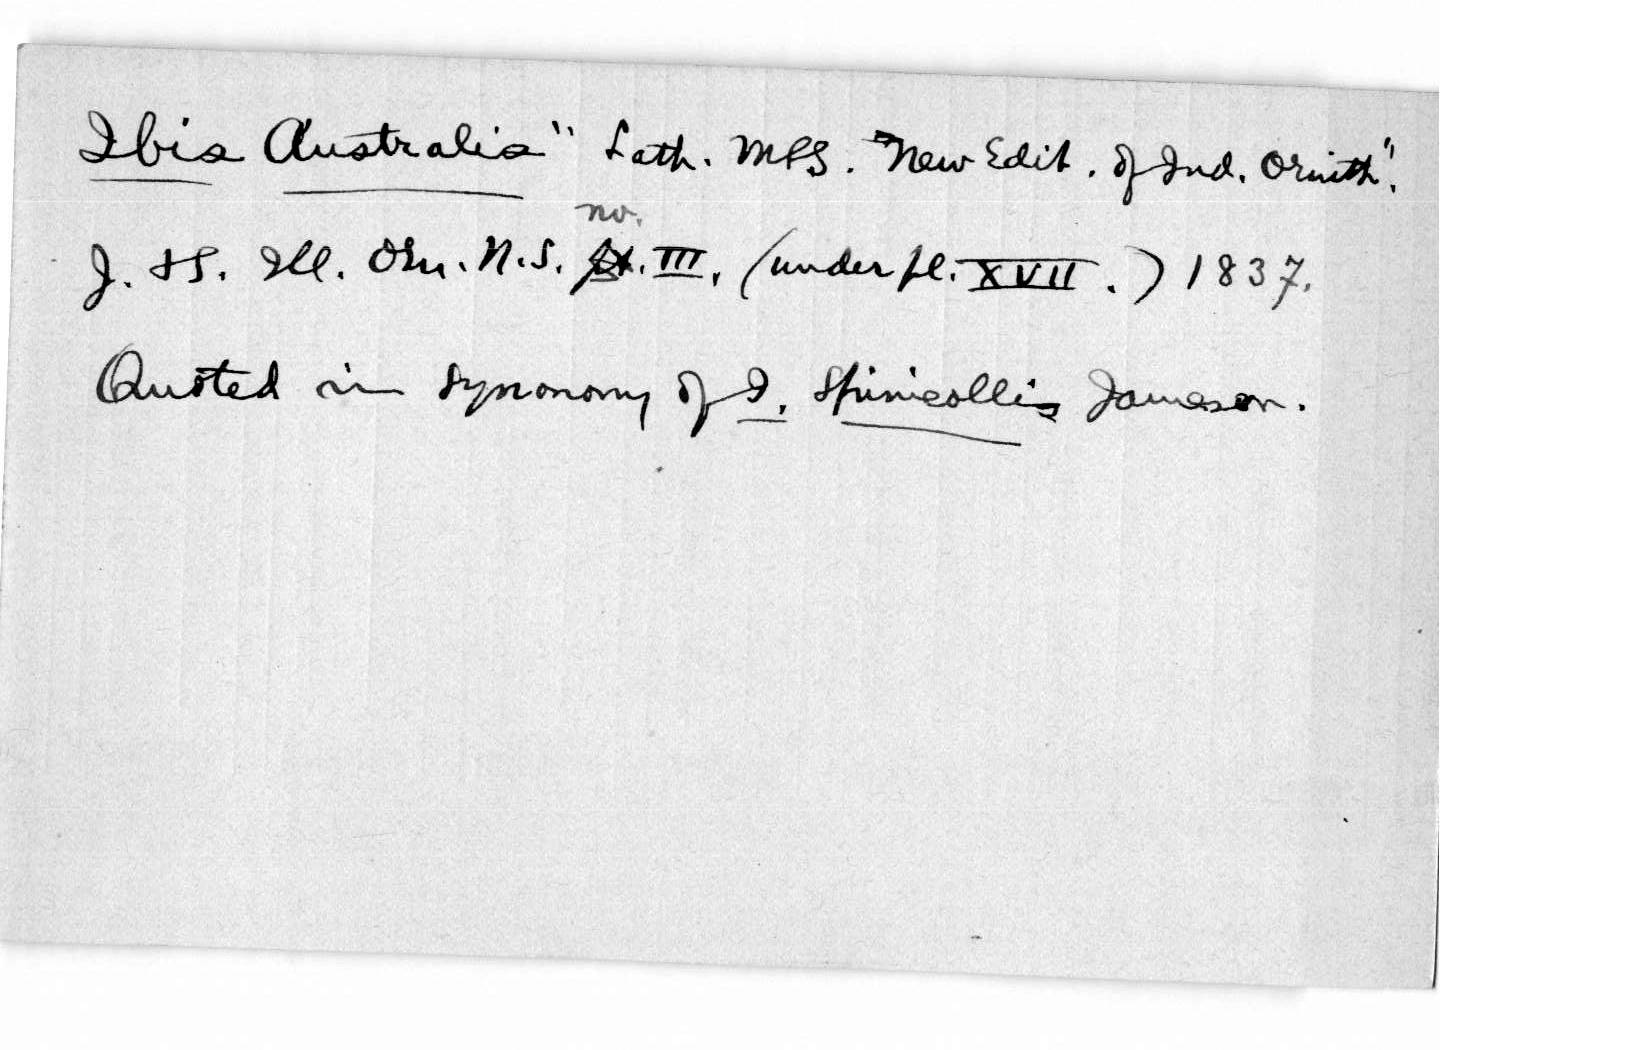 Ibis Australis" Lath. MSS. "New Edit. of Ind. Ornith".
no.
J. & S. Ill. Orn. N.S. III, (under pl. XVII.) 1837.
Quoted in synonomy of I. Spinicollis Jameson.